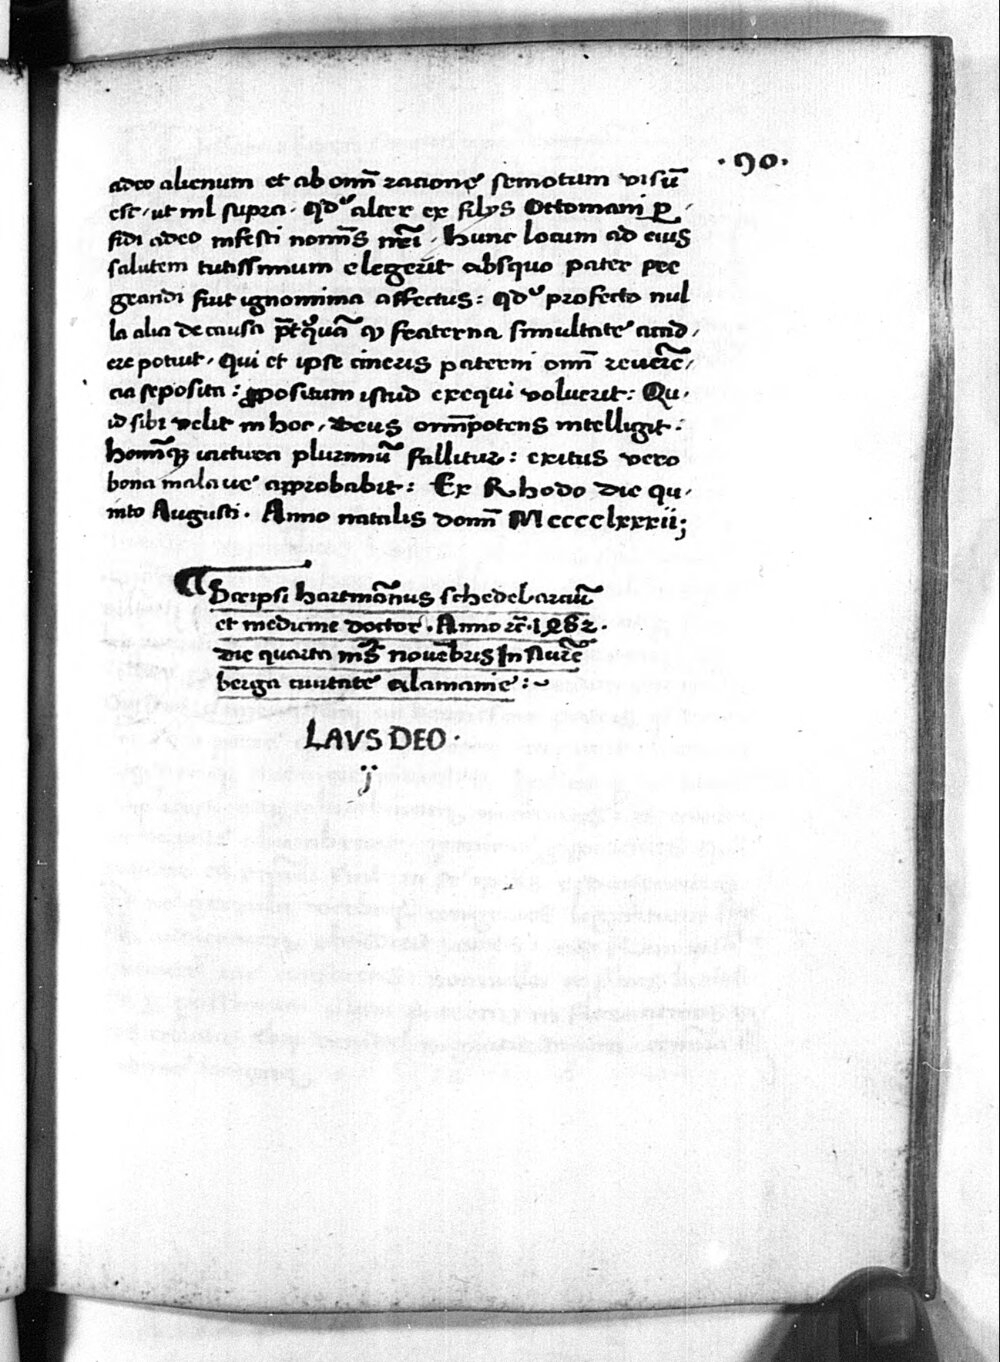 ·90·
adeo alienum et ab om̄i racione semotum visū
est, ut nil supra. qdˀ alter ex filijs Ottomani ꝑ
fidi adeo infesti nomīs nr̄i. Hunc locum ad eius
salutem tutissimum elegerit absquo pater pre
grandi fuit ignominia affectus: qdˀ profecto nul
la alia de causa p̄t̄quā qꝫ fraterna simultate accid,
ere potuit, qui et ipse cineris paterni om̄i reuerē,
cia seposita: ꝓpositum istud exequi voluerit: Qu,
id sibi velit in hoc, deus om̄ipotens intelligit:
homīꝫ iactura plurimū fallitur: exitus vero
bona mala ue approbabit: Ex Rhodo die qu,
into Augusti. Anno natalis domī Mcccclxxxii;
Scripsi hartmānus schedel arciū
et medicine doctor. Anno rc̄. 1482.
die quarta mēs̄ nouēbris In Nurē
berga ciuitate alamanie: ~
LAVS DEO.
ij